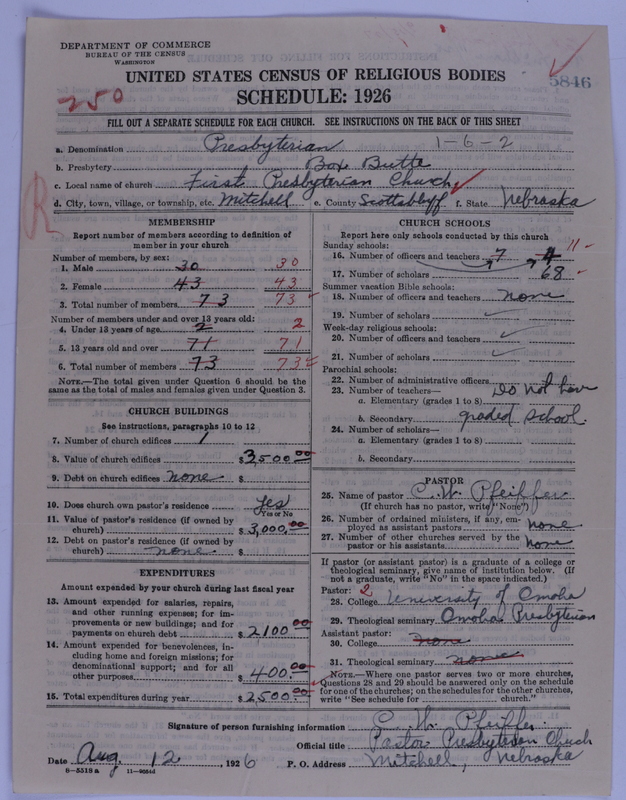 DEPARTMENT OF COMMERCE
BUREAU OF THE CENSUS
WASHINGTON
UNITED STATES CENSUS OF RELIGIOUS BODIES
5846
250
SCHEDULE: 1926
FILL OUT A SEPARATE SCHEDULE FOR EACH CHURCH. SEE INSTRUCTIONS ON THE BACK OF THIS SHEET
a. Denomination Presbyterian 1-6-2
b. Presbytery Box Butte
c. Local name of church First Presbyterian Church
R
d. City, town, village, or township, etc. Mitchell e. County Scottsbluff f. State Nebraska
MEMBERSHIP
Report number of members according to definition of
member in your church
Number of members, by sex:
1. Male 30 30
2. Female 43 43
3. Total number of members 73 73
Number of members under and over 13 years old:
4. Under 13 years of age 2 2
5. 13 years old and over 71 71
6. Total number of members 73 73
NOTE.—The total given under Question 6 should be the
same as the total of males and females given under Question 3.
CHURCH BUILDINGS
See instructions, paragraphs 10 to 12
7. Number of church edifices 1
8. Value of church edifices $3500.00
9. Debt on church edifices none $
10. Does church own pastor's residence yes
Yes or No
11. Value of pastor's residence (if owned by
church) $3,000.00
12. Debt on pastor's residence (if owned by
church) none $
EXPENDITURES
Amount expended by your church during last fiscal year
13. Amount expended for salaries, repairs,
and other running expenses; for im-
provements or new buildings; and for
payments on church debt $2100.00
14. Amount expended for benevolences, in-
cluding home and foreign missions; for
denominational support; and for all
other purposes $400.00
15. Total expenditures during year $2500.00
CHURCH SCHOOLS
Report here only schools conducted by this church
Sunday schools:
16. Number of officers and teachers 7 4 11
17. Number of scholars 68
Summer vacation Bible schools:
18. Number of officers and teachers none
19. Number of scholars
Week-day religious schools:
20. Number of officers and teachers
21. Number of scholars
Parochial schools:
22. Number of administrative officers
23. Number of teachers— Do not have
a. Elementary (grades 1 to 8)
b. Secondary graded school.
24. Number of scholars—
a. Elementary (grades 1 to 8)
b. Secondary
PASTOR
25. Name of pastor C. W. Pfeiffer
(If church has no pastor, write "None")
26. Number of ordained ministers, if any, em-
ployed as assistant pastors none
27. Number of other churches served by the
pastor or his assistants none
If pastor (or assistant pastor) is a graduate of a college or
theological seminary, give name of institution below. (If
not a graduate, write "No" in the space indicated.)
Pastor: 2
28. College University of Omaha
29. Theological seminary Omaha Presbyterian
Assistant pastor:
30. College none
31. Theological seminary none
NOTE.—Where one pastor serves two or more churches,
Questions 28 and 29 should be answered only on the schedule
for one of the churches; on the schedules for the other churches,
write "See schedule for church."
Signature of person furnishing information C. W. Pfeiffer
Official title Pastor Presbyterian Church
Date Aug. 12, 1926 P. O. Address Mitchell, Nebraska
8-5518a